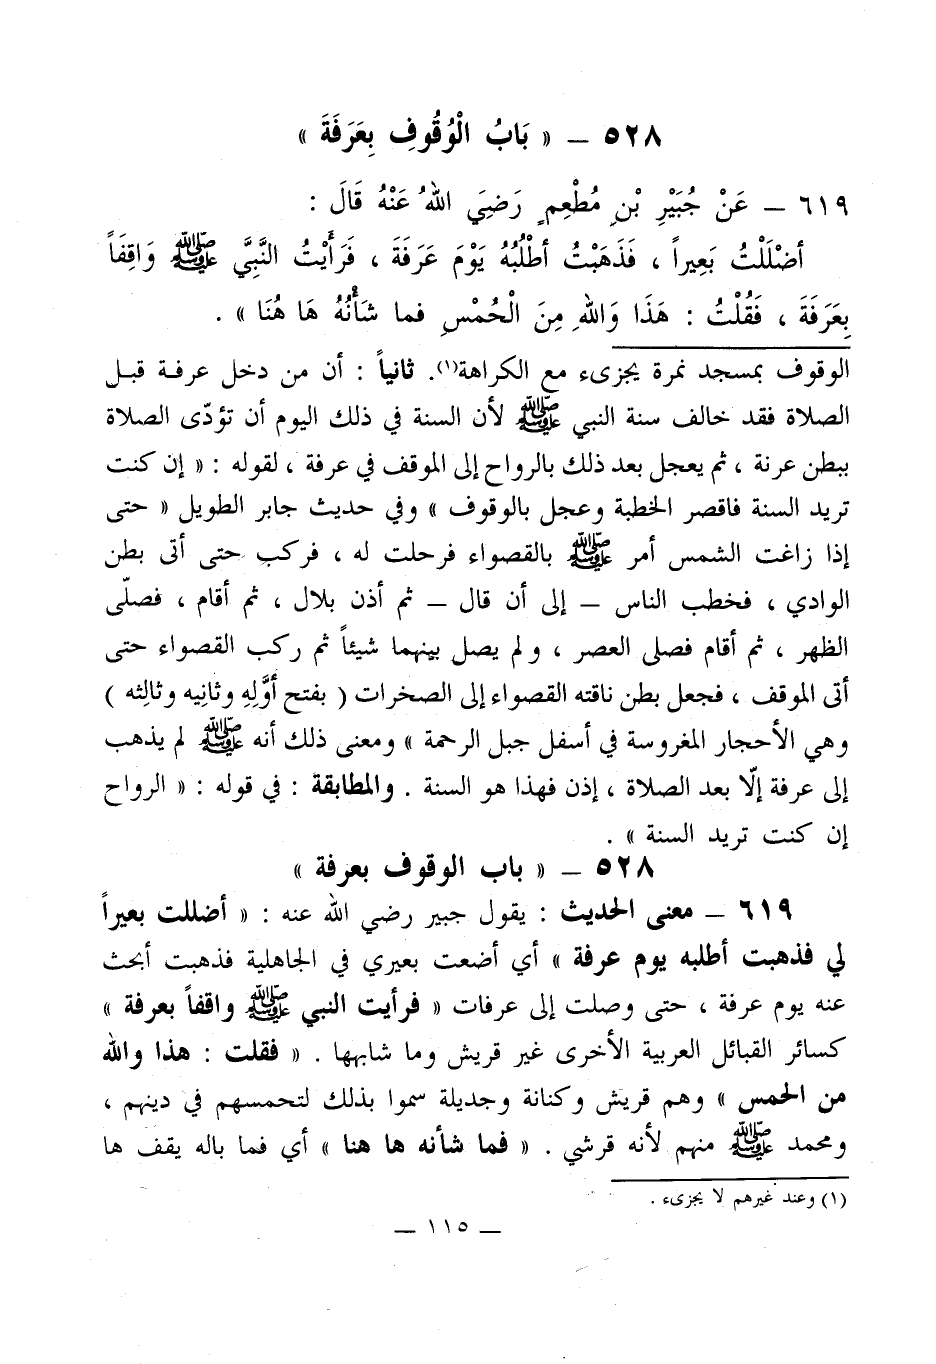 ٥٢٨ ــ « بَابُ الْوُقُوفِ بِعَرَفَةَ »
٦١٩ ــ عَنْ جُبَيْرِ بْنِ مُطْعِمٍ رَضِيَ اللهُ عَنْهُ قَالَ :
أضْلَلْتُ بَعِيراً ، فَذَهَبْتُ أطْلُبُهُ يَوْمَ عَرَفَةَ ، فَرَأَيْتُ النَّبِيَّ ﷺ وَاقِفَاً
بِعَرَفَةَ ، فَقُلْتُ : هَذَا وَاللهِ مِنَ الْحُمْسِ فما شَأْنُهُ هَا هُنَا » .
الوقوف بمسجد نمرة يجزىء مع الكراهة(١). ثانياً : أن من دخل عرفة قبل
الصلاة فقد خالف سنة النبي ﷺ لأن السنة في ذلك اليوم أن تؤدّى الصلاة
ببطن عرنة ، ثم يعجل بعد ذلك بالرواح إلى الموقف في عرفة ، لقوله : « إن كنت
تريد السنة فاقصر الخطبة وعجل بالوقوف » وفي حديث جابر الطويل « حتى
إذا زاغت الشمس أمر ﷺ بالقصواء فرحلت له ، فركب حتى أتى بطن
الوادي ، فخطب الناس ــ إلى أن قال ــ ثم أذن بلال ، ثم أقام ، فصلّى
الظهر ، ثم أقام فصلى العصر ، ولم يصل بينهما شيئاً ثم ركب القصواء حتى
أتى الموقف ، فجعل بطن ناقته القصواء إلى الصخرات ( بفتح أوَّلِهِ وثانِيه وثالِثه )
وهي الأحجار المغروسة في أسفل جبل الرحمة » ومعنى ذلك أنه ﷺ لم يذهب
إلى عرفة إلّا بعد الصلاة ، إذن فهذا هو السنة . والمطابقة : في قوله : « الرواح
إن كنت تريد السنة » .
٥٢٨ ــ « باب الوقوف بعرفة »
٦١٩ ــ معنى الحديث : يقول جبير رضي الله عنه : « أضللت بعيراً
لي فذهبت أطلبه يوم عرفة » أي أضعت بعيري في الجاهلية فذهبت أبحث
عنه يوم عرفة ، حتى وصلت إلى عرفات « فرأيت النبي ﷺ واقفاً بعرفة »
كسائر القبائل العربية الأخرى غير قريش وما شابهها . « فقلت : هذا والله
من الحمس » وهم قريش وكنانة وجديلة سموا بذلك لتحمسهم في دينهم ،
ومحمد ﷺ منهم لأنه قرشي . « فما شأنه ها هنا » أي فما باله يقف ها
(١) وعند غيرهم لا يجزىء .
ــ ١١٥ ــ